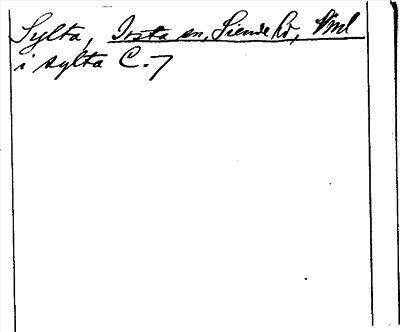 Sylta, Irsta sn, Siende hd, Vml
i sylta C.7